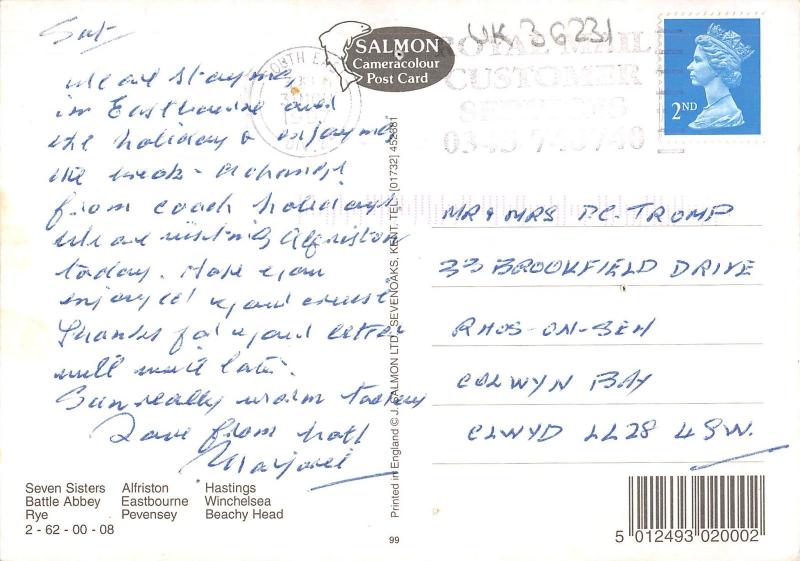 Sat-
We are staying
in Eastbourne and
the holiday & enjoying
the break - a change
from coach holidays
We are visiting Alfriston
today. Hope you
enjoyed your cruise
Thanks for your letter
will write later.
Sun really warm today
Love from
Marjorie
SALMON
Cameracolour
Post Card
UK 36231
ROYAL MAIL
CUSTOMER
SERVICES
0345 740740
2ND
MR & MRS P.C. TROMP
33 BROOKFIELD DRIVE
RHOS-ON-SEA
COLWYN BAY
CLWYD LL28 4SW.
Printed in England © J. SALMON LTD., SEVENOAKS, KENT. TEL: (01732) 452381
Seven Sisters Alfriston Hastings
Battle Abbey Eastbourne Winchelsea
Rye Pevensey Beachy Head
2 - 62 - 00 - 08
99
5 012493 020002